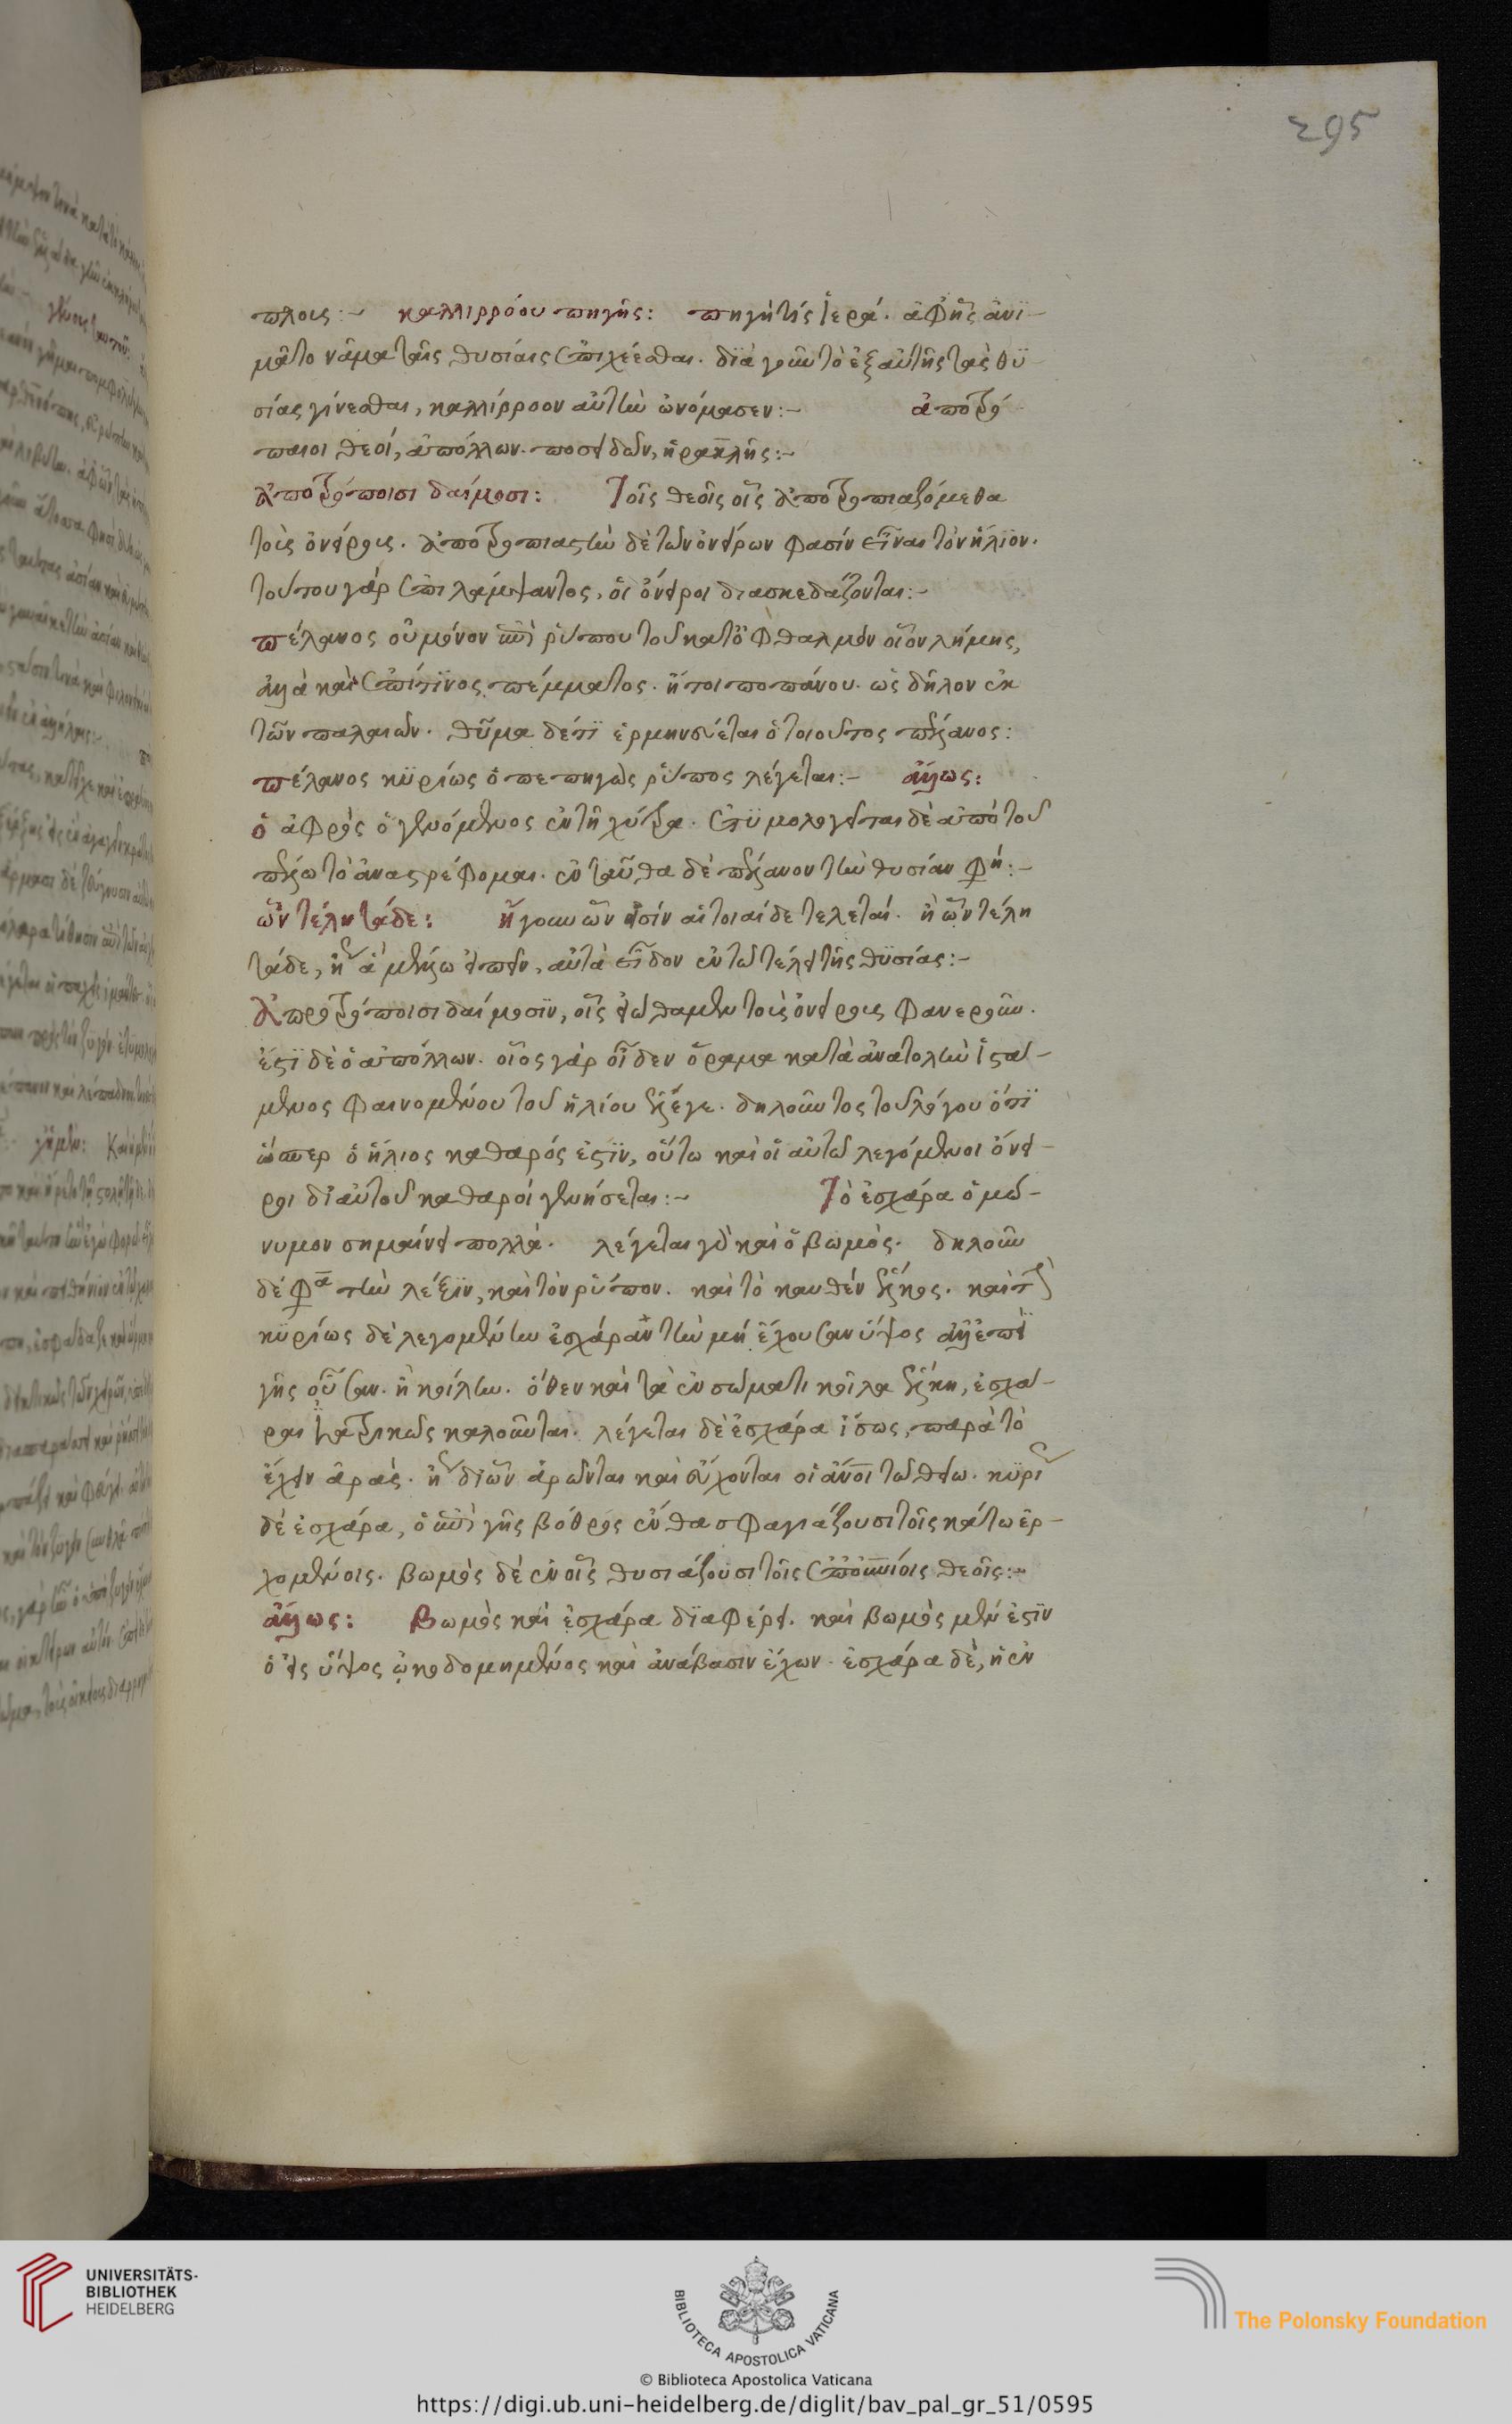 295
πλοις:~ καλλιρρόου πηγῆς: πηγή τίς ἱερά. ἀφ ἧς ἀνι-
μᾶτο νᾶμα ταῖς θυσίαις ἐπιχέεσθαι. διὰ γοῦν τὸ ἐξ αὐτῆς τὰς θυ
σίας γίνεσθαι, καλλίρροον αὐτὴν ὠνόμασεν:~ ἀποτρό
παιοι θεοί, ἀπόλλων. ποσειδῶν, ἡρακλῆς:~
ἀποτρόποισι δαίμοσι: Τοῖς θεοῖς οἷς ἀποτροπιαζόμεθα
τοὺς ὀνείρους. ἀποτροπιαστὴν δὲ τῶν ὀνείρων φασὶν εἶναι τὸν ἥλιον.
τούτου γὰρ ἐπιλάμψαντος, οἱ ὄνειροι διασκεδάζονται:~
πέλανος οὐ μόνον ἐπὶ ῥύπου τοῦ κατ ὀφθαλμὸν οἷον λήμης,
ἀλλὰ καὶ ἐπί τινος πέμματος. ἤτοι ποπάνου. ὡς δῆλον ἐκ
τῶν παλαιῶν. θῦμα δέ τι ἑρμηνεύεται ὁ τοιοῦτος πέλανος:
πέλανος κυρίως ὁ πεπηγὼς ῥύπος λέγεται:~ ἄλλως:
ὁ ἀφρὸς ὁ γενόμενος ἐν τῇ χύτρα. ἐτυμολογεῖται δὲ ἀπὸ τοῦ
πέλω τὸ ἀναστρέφομαι. ἐνταῦθα δὲ πέλανον τὴν θυσίαν φη:~
ὧν τέλη τάδε: ἤγουν ὧν εἰσὶν αἱ τοιαίδε τελεταί. ἢ ὧν τέλη
τάδε, ἢ ἃ μέλλω εἰπεῖν, αὐτὰ εἶδον ἐν τῶ τέλει τῆς θυσίας:~
ἀποτρόποισι δαίμοσιν, οἷς εἰώθαμεν τοὺς ὀνείρους φανεροῦν.
ἔστι δὲ ὁ ἀπόλλων. οἷος γὰρ οἶδεν ὅραμα κατὰ ἀνατολὴν ἱστά-
μενος φαινομένου τοῦ ἡλίου ἔλεγε. δηλοῦντος τοῦ λόγου ὅτι
ὥσπερ ὁ ἥλιος καθαρός ἐστιν, οὕτω καὶ οἱ αὐτῶ λεγόμενοι ὄνει-
ροι δι αὐτοῦ καθαροὶ γενήσεται:~ Τὸ ἐσχάρα ὁμώ-
νυμον σημαίνει πολλά. λέγεται γὰρ καὶ ὁ βωμός. δηλοῦν
δέ φα τὴν λέξιν, καὶ τὸν ῥύπον. καὶ τὸ καυθὲν ἕλκος. καὶ τ
κυρίως δὲ λεγομένην ἐσχάραν τὴν μὴ ἔχουσαν ὕψος ἀλλ ἐπὶ
γῆς οὖσαν. ἢ κοίλην. ὅθεν καὶ τὰ ἐν σώματι κοῖλα ἕλκη, ἐσχά-
ραι ἰατρικῶς καλοῦνται. λέγεται δὲ ἐσχάρα ἴσως, παρὰ τὸ
ἔχειν ἀράς. ἢ δι ὧν ἀρῶνται καὶ εὔχονται οἱ ἄνοι τῶ θεῶ. κυρι
δὲ ἐσχάρα, ὁ ἐπὶ γῆς βόθρος ἔνθα σφαγιάζουσι τοῖς κάτω ἐρ-
χομένοις. βωμὸς δὲ ἐν οἷς θυσιάζουσι τοῖς ἐπουνίοις θεοῖς:~
ἄλλως: Βωμὸς καὶ ἐσχάρα διαφέρει. καὶ βωμὸς μέν ἐστιν
ὁ εἰς ὕψος ᾠκοδομημένος καὶ ἀνάβασιν ἔχων. ἐσχάρα δὲ, ἡ ἐν
UNIVERSITÄTS-
BIBLIOTHEK
HEIDELBERG
BIBLIOTECA APOSTOLICA VATICANA
The Polonsky Foundation
© Biblioteca Apostolica Vaticana
https://digi.ub.uni-heidelberg.de/diglit/bav_pal_gr_51/0595